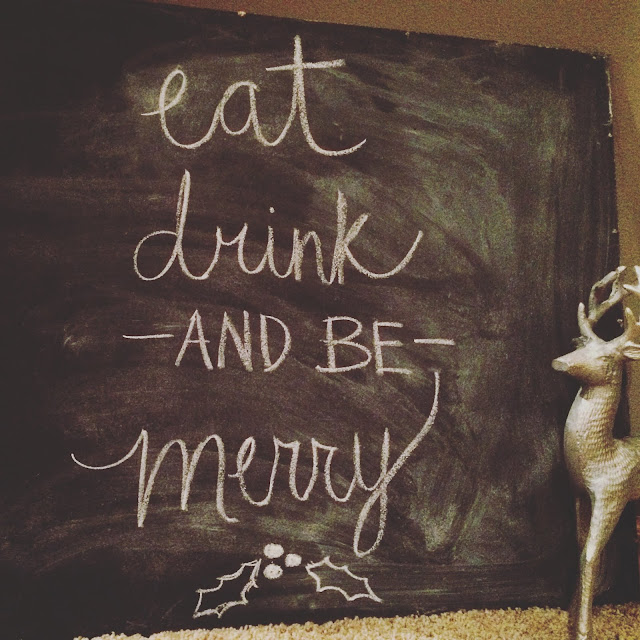 eat
drink
-AND BE-
merry